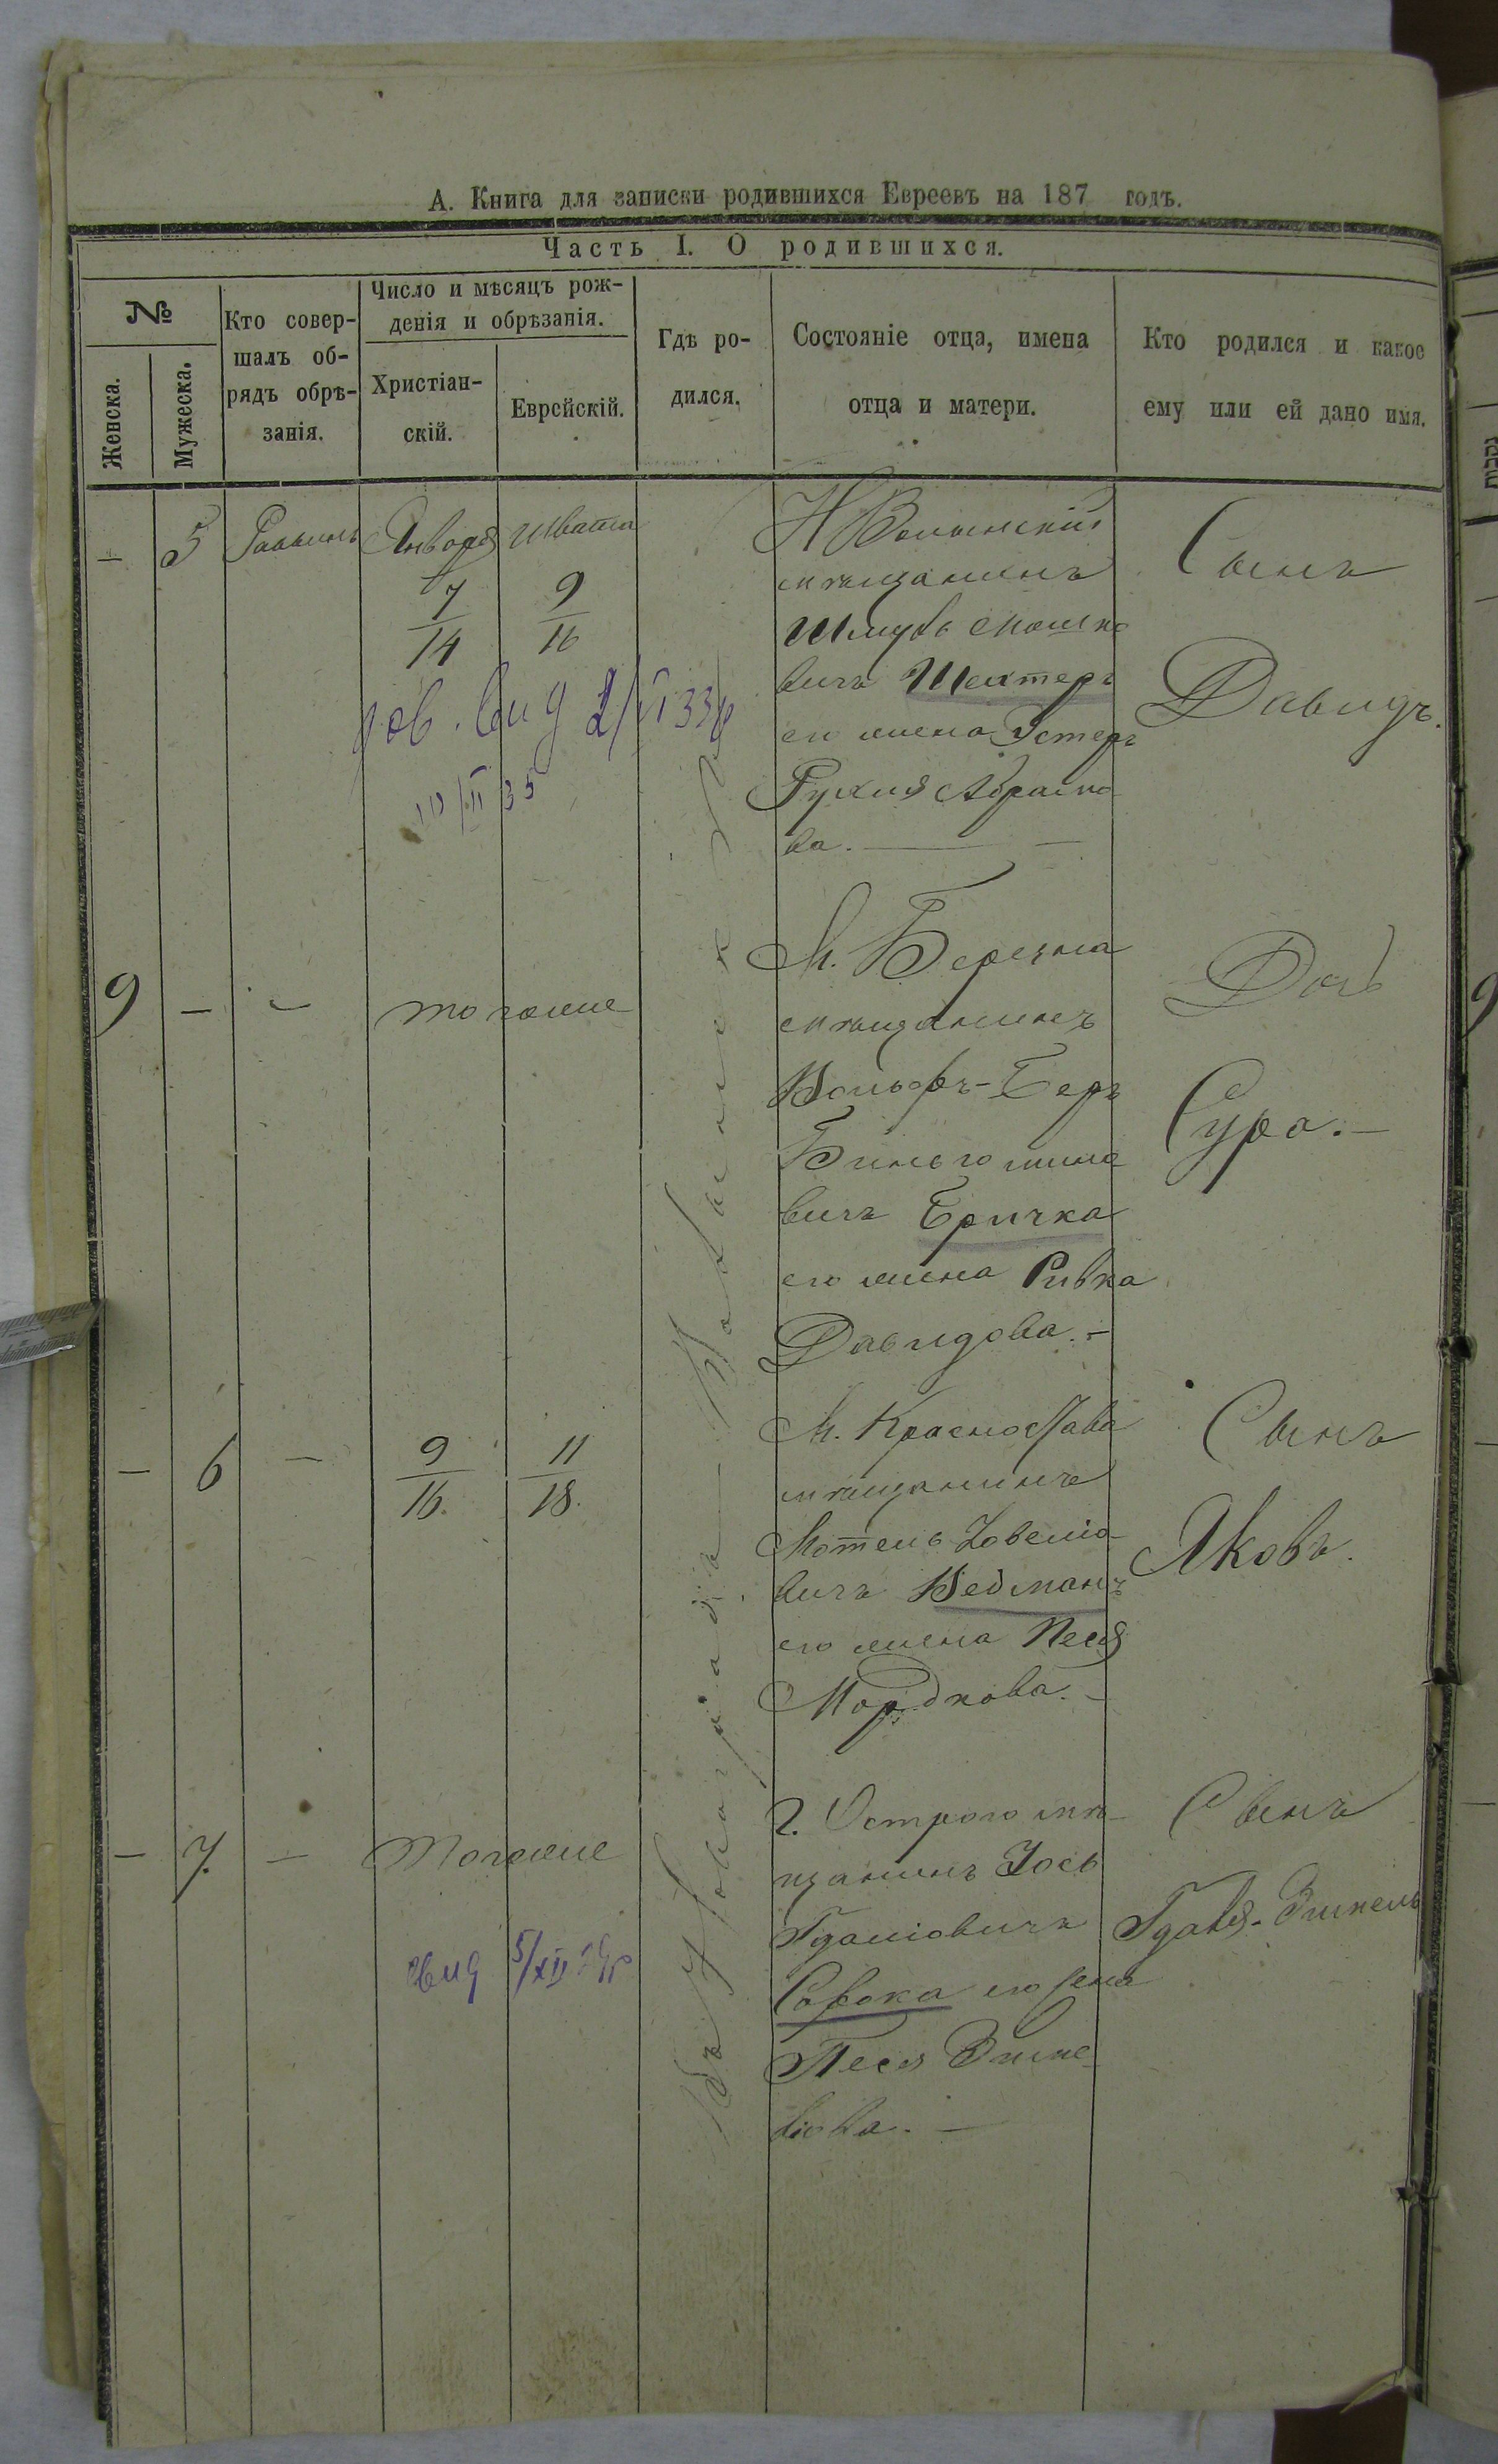 А. Книга для записки родившихся Евреевъ на 187 годъ.
Часть I. О родившихся.
№
Женска.
Мужеска.
Кто совер-
шалъ об-
рядъ обрѣ-
занія.
Число и мѣсяцъ рож-
денія и обрѣзанія.
Христіан-
скій.
Еврейскій.
Гдѣ ро-
дился.
Состояніе отца, имена
отца и матери.
Кто родился и какое
ему или ей дано имя.
— 5 Раввинъ Января Швата
7/14 9/16
Н Волынскій
мѣщанинъ
Шмуль Мошко
вичъ Шехтеръ
его жена Эстеръ
Рухля Абрамо
ва. —
Сынъ
Давидъ.
9 — — тогоже
М. Березна
мѣщанинъ
Вольфъ-Беръ
Биньомино
вичъ Бричка
его жена Ривка
Давидова. —
Дочь
Сура. —
— 6 — 9/16. 11/18.
М. Красностава
мѣщанинъ
Мотель
вичъ Ведманъ
его жена Песя
Мордкова. —
Сынъ
Яковъ.
— 7. — Тогоже
г. Острого мѣ-
щанинъ Іось
Гдаліовичъ
Сорока его жена
Песя
Сынъ
Гдаля-